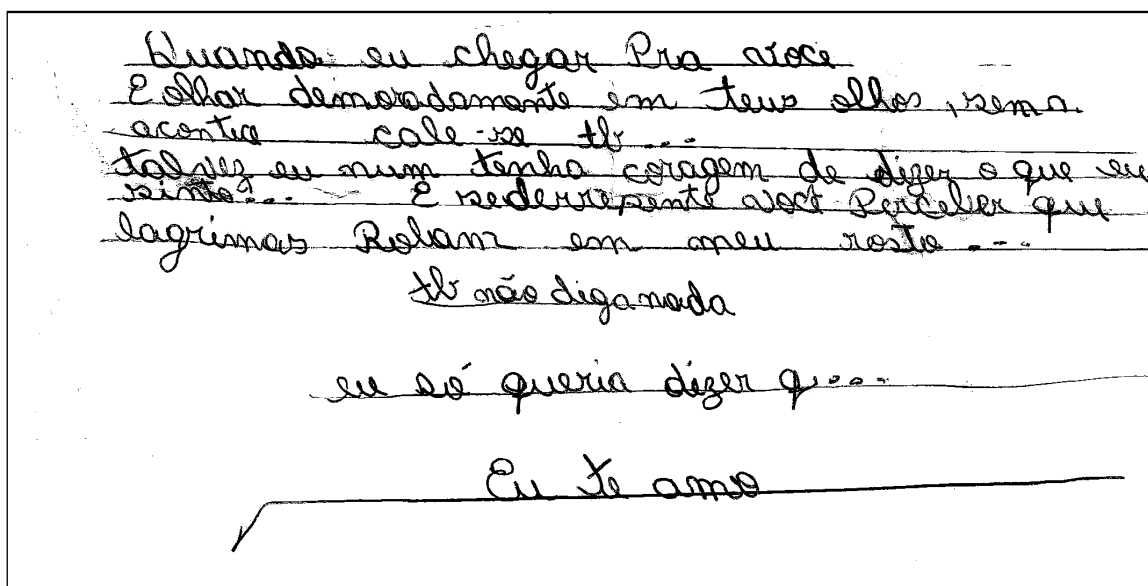 Quando eu chegar Pra voce
E olhar demoradamente em teus olhos, sem n.
acontece cale-se tb...
talvez eu num tenha coragem de dizer o que eu
sinto?... E sederrepente você Perceber que
lagrimas Rolam em meu rosto ...
tb não diga nada
eu só queria dizer q...
Eu te amo